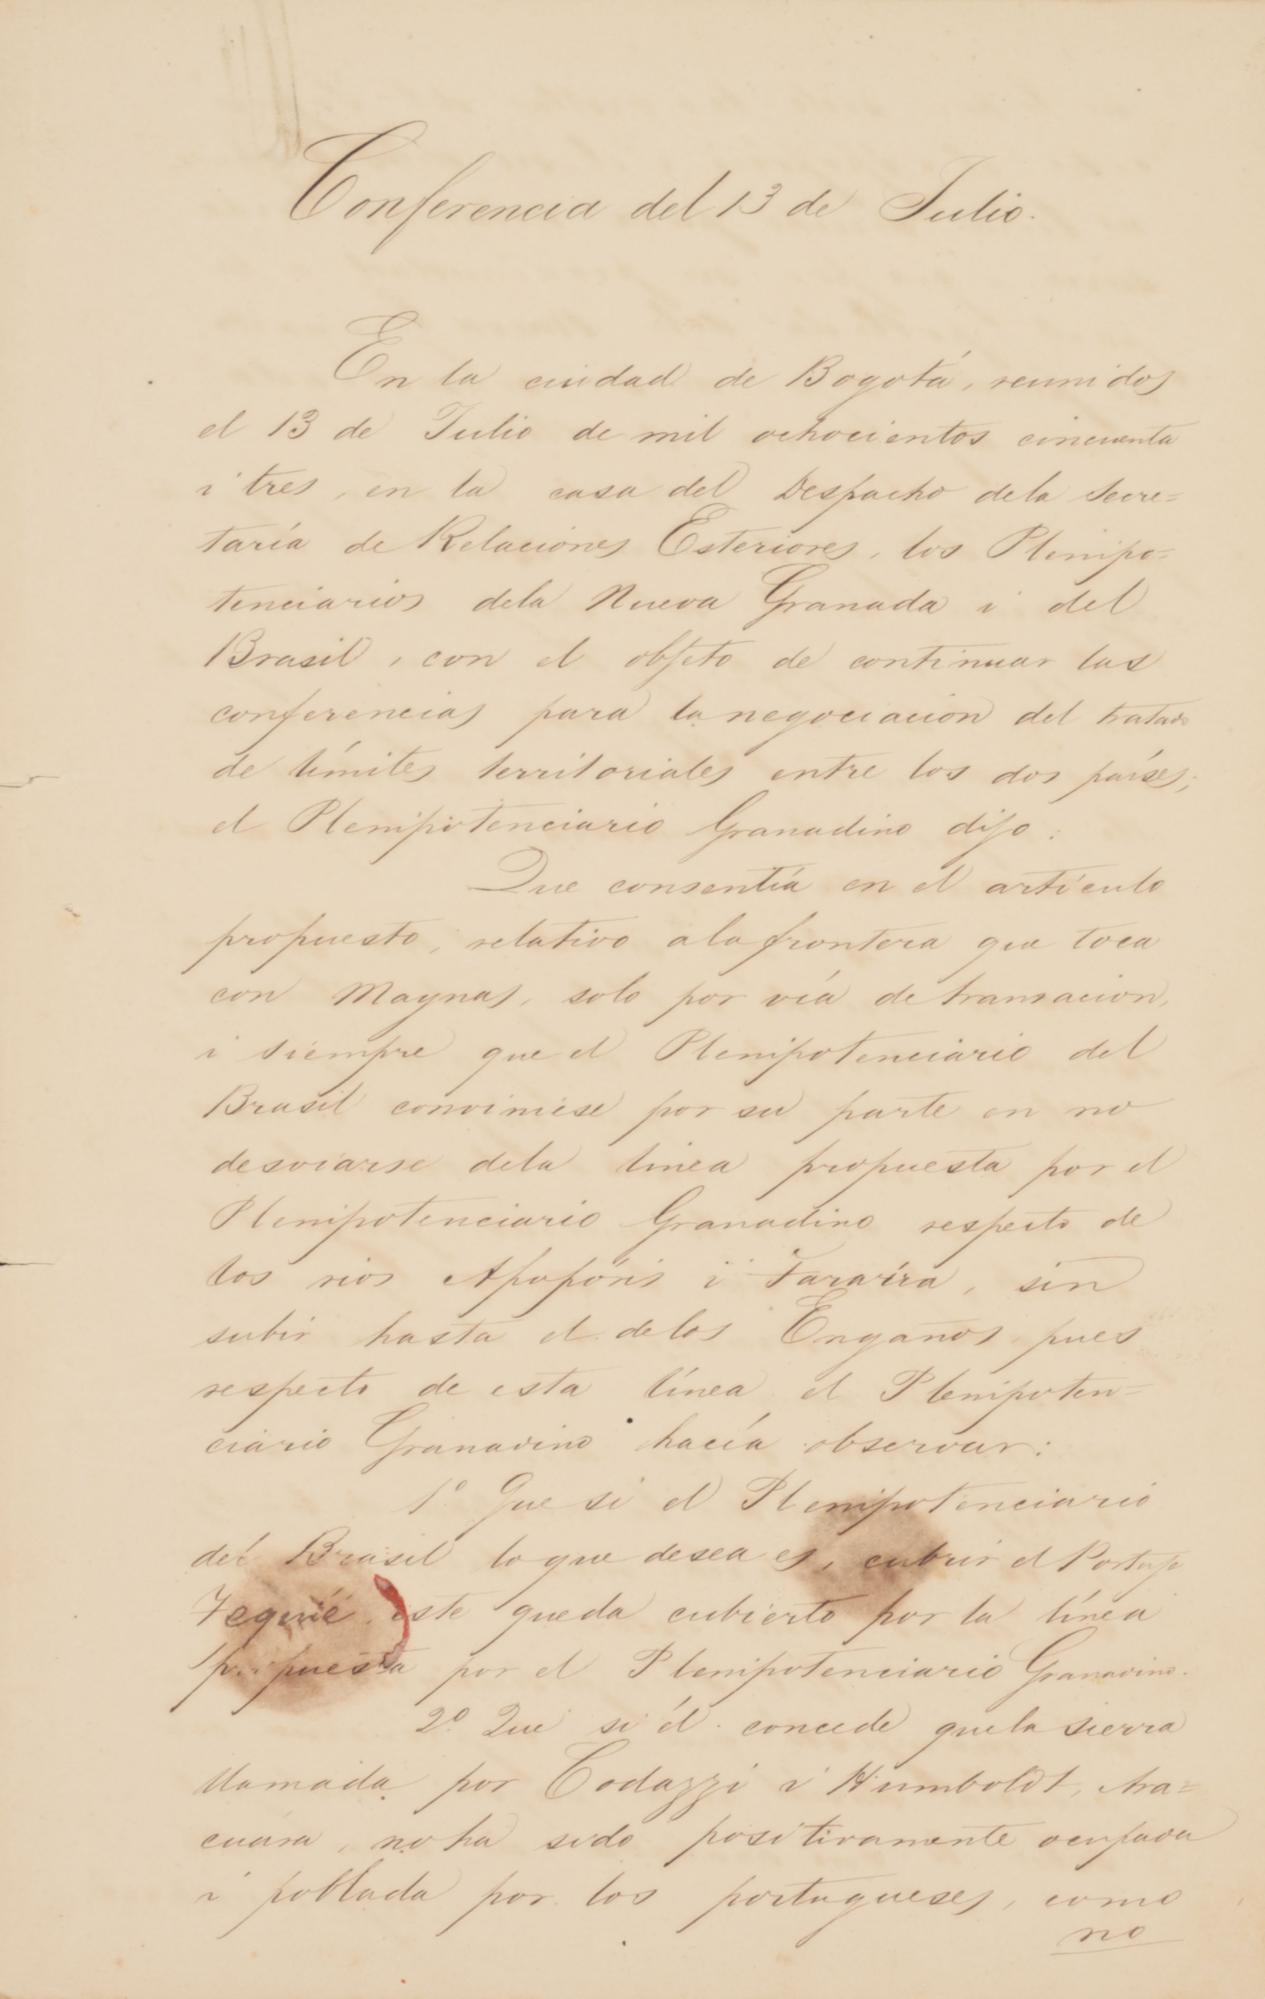 Conferencia del 13 de Julio.
En la ciudad de Bogotá, reunidos
el 13 de Julio de mil ochocientos cincuenta
i tres, en la casa del Despacho dela Secre=
taría de Relaciones Esteriores, los Plenipo=
tenciarios dela Nueva Granada i del
Brasil, con el objeto de continuar las
conferencias para la negociacion del tratado
de límites territoriales entre los dos países;
el Plenipotenciario Granadino dijo:
Que consentía en el artículo
propuesto, relativo a la frontera que toca
con Maynas, solo por vía de transacion,
i siempre que el Plenipotenciario del
Brasil conviniese por su parte en no
desviarse dela linea propuesta por el
Plenipotenciario Granadino respecto de
los rios Apopóris i Taraíra, sin
subir hasta el delos Engaños, pues
respecto de esta línea el Plenipoten=
ciario Granadino hacía observar:
1º Que si el Plenipotenciario
del Brasil lo que desea es, cubrir el Portugo
Tequié, este queda cubierto por la línea
propuesta por el Plenipotenciario Granadino.
2º Que si él concede que la sierra
llamada por Codazzi i Humboldt, Ara=
cuára, no ha sido positivamente ocupada
i poblada por los portugueses, como
no